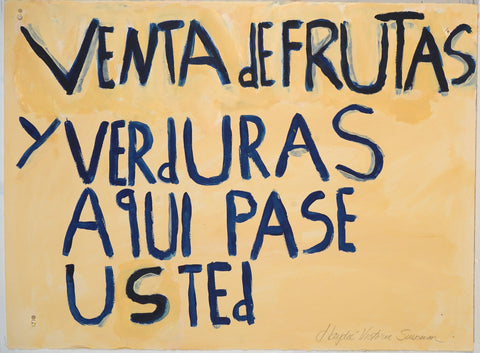 VENTA dE FRUTAS
Y VERdURAS
AqUI PASE
USTEd
Victoria